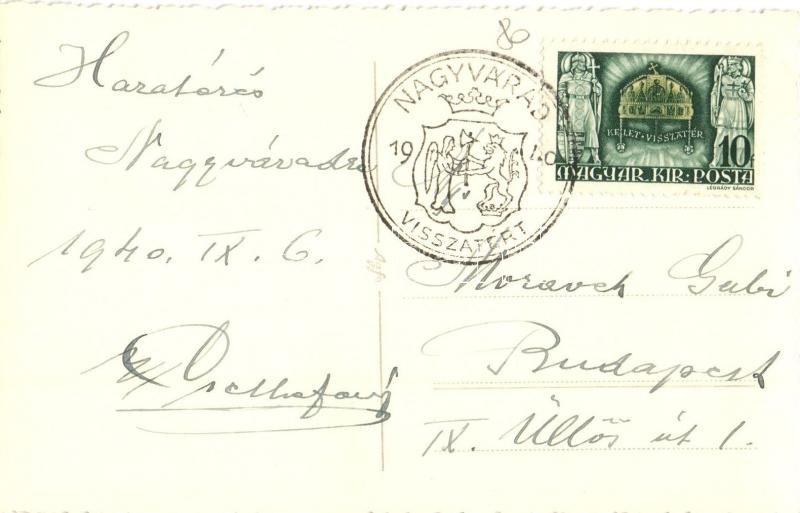 80
Haratérés
Nagyváradra
1940. IX. 6.
NAGYVÁRAD
19 40
VISSZATÉRT
KELET-VISSZATÉR
10f
MAGYAR KIR: POSTA
LÉGRÁDY SÁNDOR
Moravek Gabi
Budapest
IX. Üllői út 1.